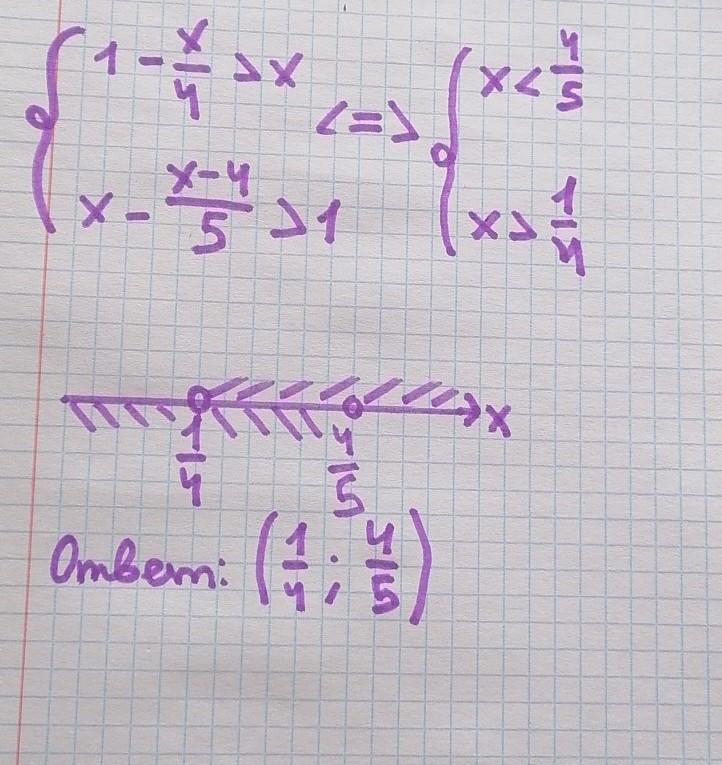 { 1 - x/4 > x <=> { x < 4/5
x - (x-4)/5 > 1 x > 1/4
x
1/4 4/5
Ответ: (1/4; 4/5)